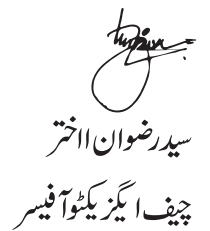 سید رضوان اختر
چیف ایگزیکٹو آفیسر